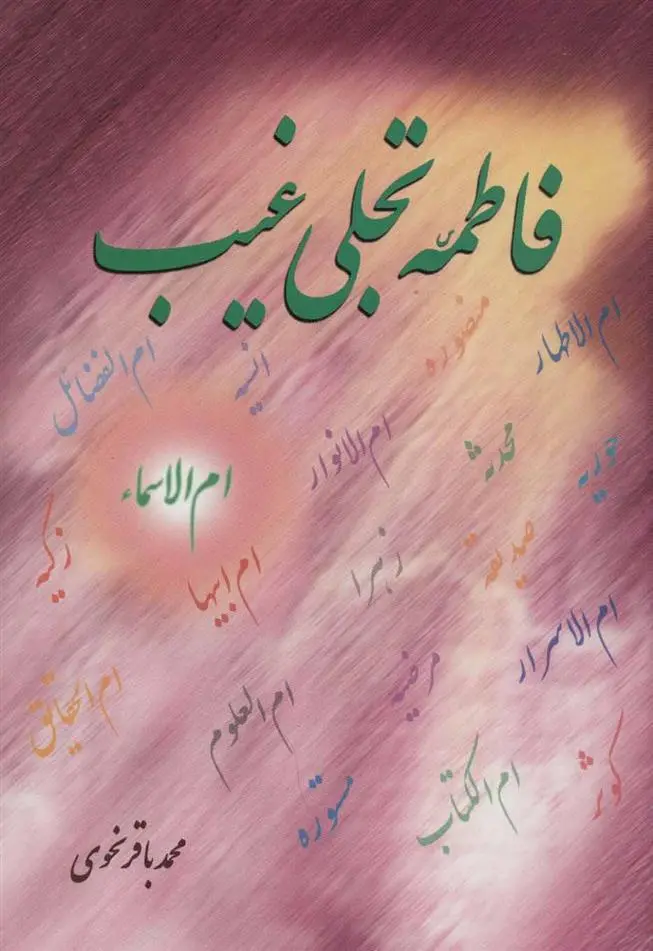 فاطمه تجلی غیب
ام الاطهار
منصوره
انسیه
ام الفضائل
حوریه
محدثه
ام الانوار
ام الاسماء
صدیقه
زهرا
ام ابیها
زکیه
ام الاسرار
مرضیه
ام العلوم
ام الحقائق
کوثر
ام الکتاب
مستوره
محمدباقر نحوی